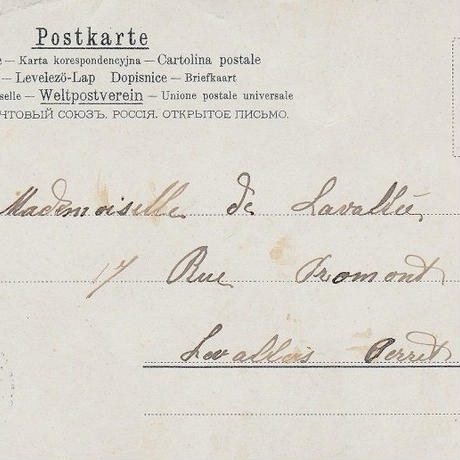 Postkarte
e — Karta korespondencyjna — Cartolina postale
— Levelező-Lap Dopisnice — Briefkaart
selle — Weltpostverein — Unione postale universale
ЧТОВЫЙ СОЮЗЪ. РОССІЯ. ОТКРЫТОЕ ПИСЬМО.
Mademoiselle de Lavallée,
17 Rue Fromont
Levallois Perret